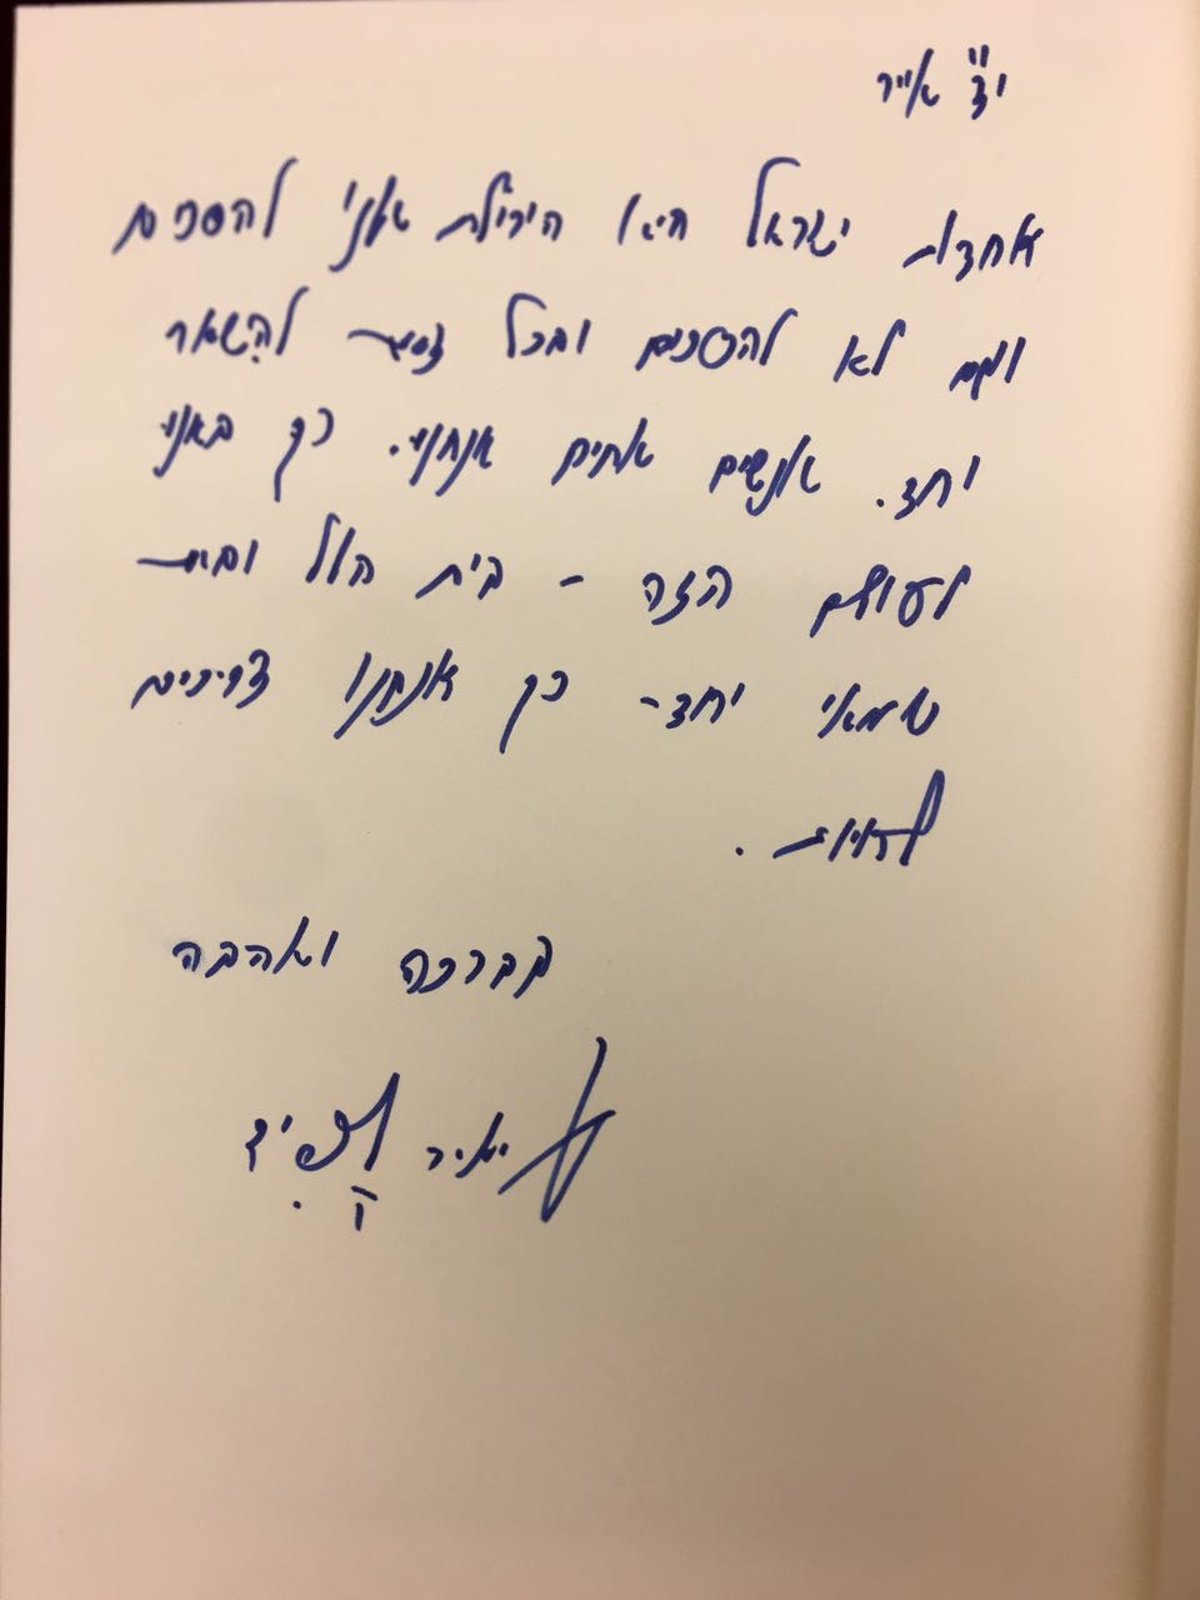 י"ד אייר
אחדות ישראל היא היכולת שלנו להסכים
וגם לא להסכים ובכל זאת להִשאר
יחד. אנשים אחים אנחנו. כך באנו
לעולם הזה - בית הלל ובית
שמאי יחד - כך אנחנו צריכים
להיות.
בברכה ואהבה
יאיר לָפִּיד